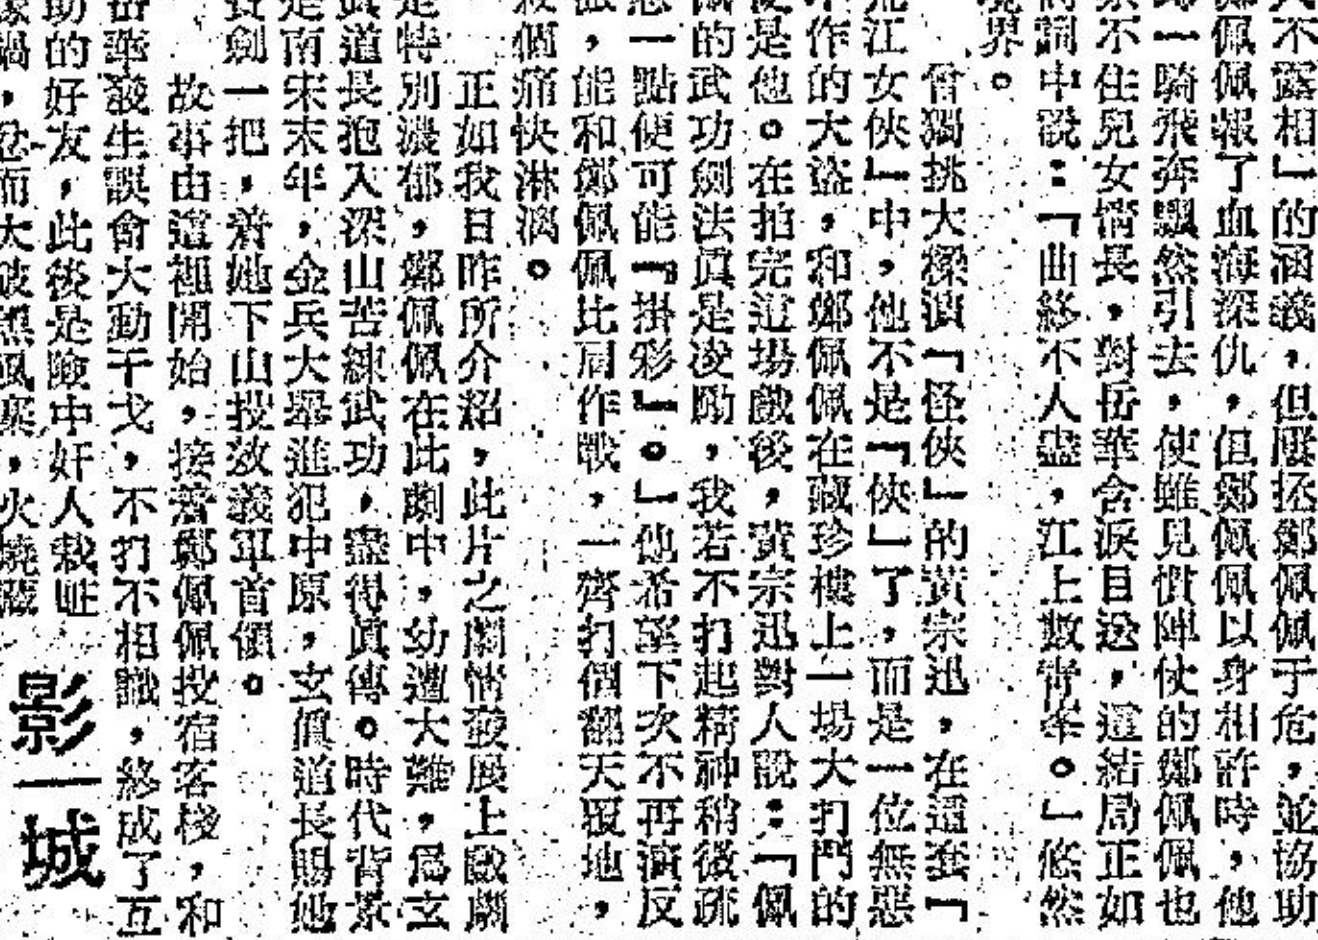 人不露相」的涵義，但壓抷鄭佩佩于危，並協助
鄭佩佩報了血海深仇，但鄭佩佩以身相許時，他
一騎飛奔飄然引去，使雖見慣陣仗的鄭佩佩也
不住兒女情長，對岳華含淚目送，這結局正如
詞中說：「曲終不人盡，江上數青峯。」悠然
境界。
曾獨挑大樑演「怪俠」的黃宗迅，在這套「
荒江女俠」中，他不是「俠」了，而是一位無惡
不作的大盜，和鄭佩佩在藏珍樓上一場大打鬥的
便是他。在拍完這場戲後，黃宗迅對人說：「佩
佩的武功劍法眞是凌勵，我若不打起精神稍微疏
忽一點便可能『掛彩』。」他希望下次不再演反
派，能和鄭佩佩比肩作戰，一齊打個翻天覆地，
殺個痛快淋漓。
正如我日昨所介紹，此片之劇情發展上戲劇
是特別濃郁，鄭佩佩在此劇中，幼遭大難，爲玄
眞道長抱入深山苦練武功，盡得眞傳。時代背景
是南宋末年，金兵大舉進犯中原，玄眞道長賜她
寶劍一把，着她下山投效義軍首領。
故事由這裡開始，接着鄭佩佩投宿客棧，和
岳華發生誤會大動干戈，不打不相識，終成了互
助的好友，此後是險中奸人栽贓
禍，忿而大破黑風寨，火燒
影一城